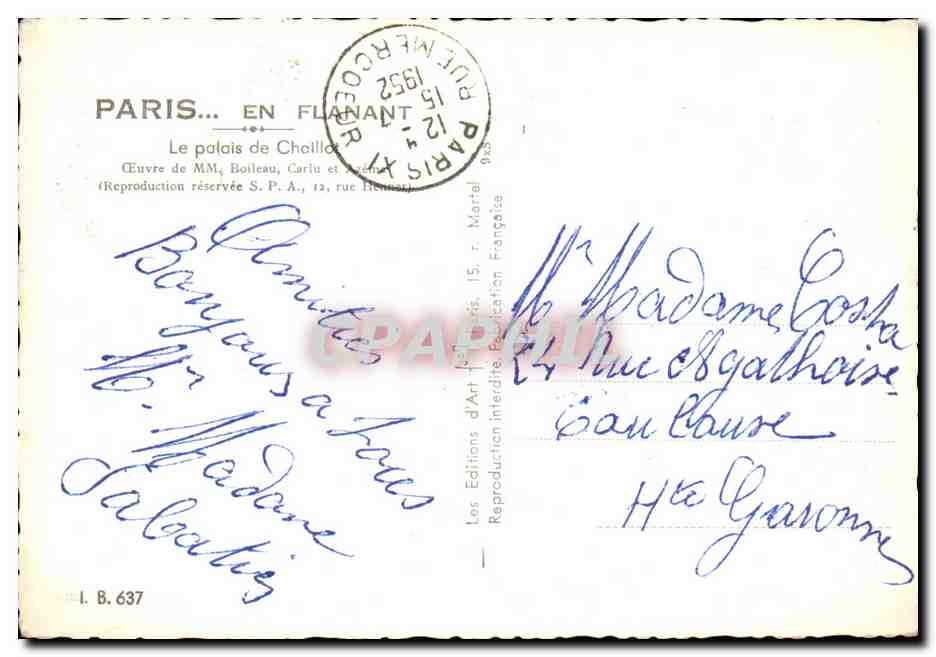 PARIS... EN FLANANT
Le palais de Chaillot
Œuvre de MM. Boileau, Carlu et Azéma
(Reproduction réservée S. P. A., 12, rue Henner)
PARIS XI
RUE MERCOEUR
12 4
15 - 7
1952
Amitiés
Bonjours a tous
Mr. Madame
Sabatier
I. B. 637
Les Editions d'Art Paris, 15, r. Martel
Reproduction interdite. Fabrication Française
9x5
CPAPHIL
Mr Madame Costa
24 Rue Agathoise
Toulouse
Hte Garonne